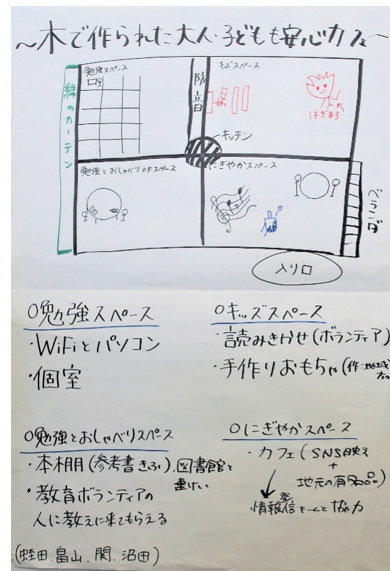 ～木で作られた大人・子どもも安心カフェ～
勉強スペース
防音
キッズスペース
緑のカーテン
はぎまろ
キッチン
勉強とおしゃべりOKスペース
にぎやかスペース
入り口
○勉強スペース
・WiFiとパソコン
・個室
○キッズスペース
・読みきかせ(ボランティア)
・手作りおもちゃ
○勉強とおしゃべりスペース
・本棚(参考書きふ)
図書館と
連けい
・教育ボランティアの
人に教えに来てもらえる
○にぎやかスペース
・カフェ(SNS映え
+
地元の有名品)
情報発信チームと協力
(蛭田・畠山・関・沼田)